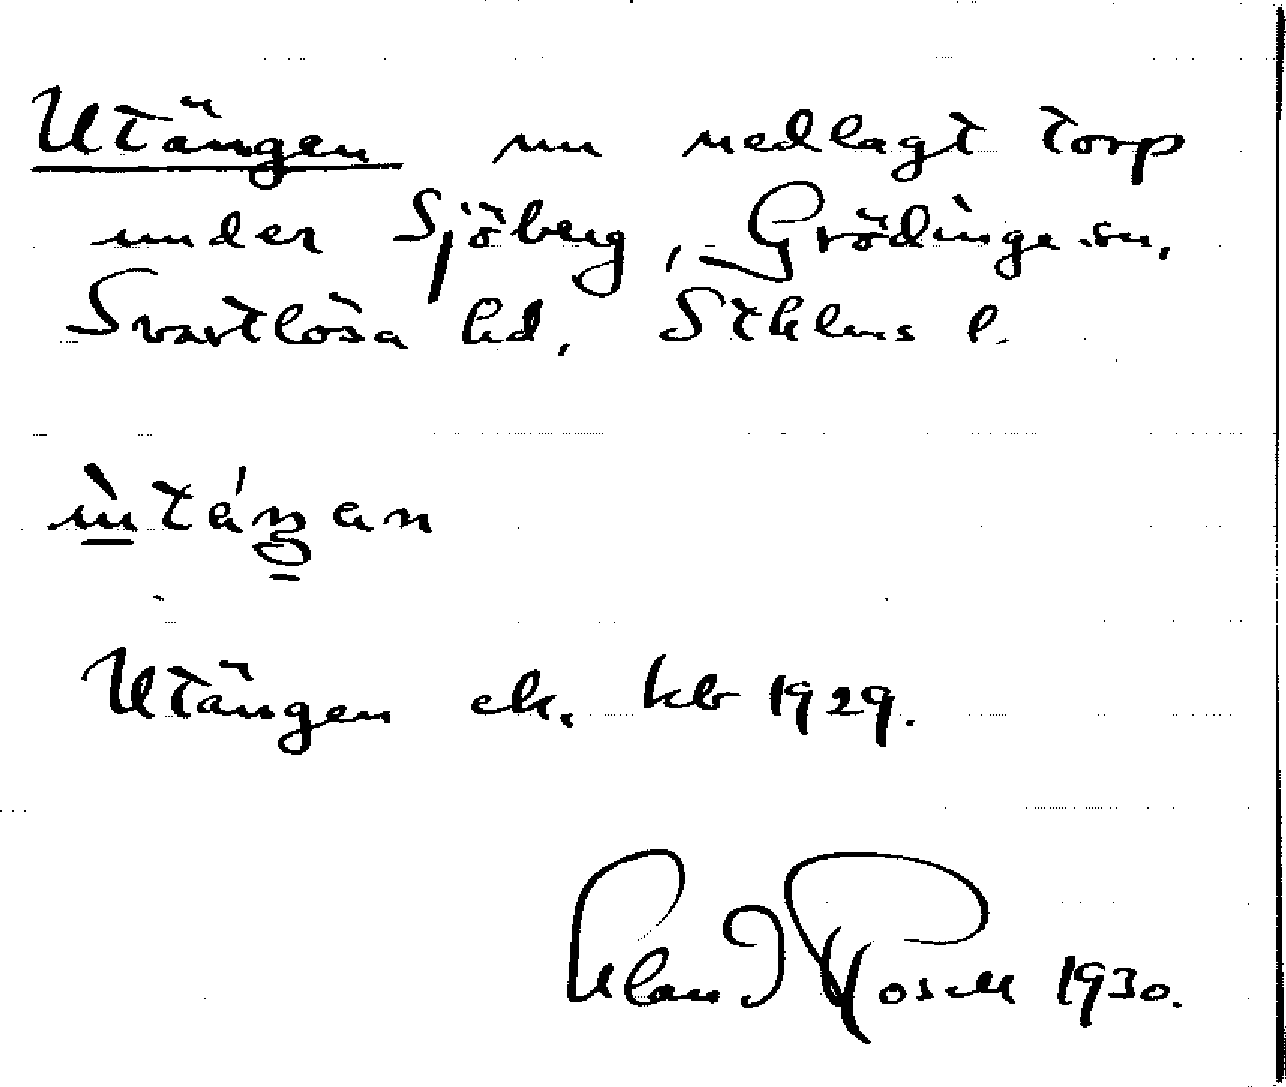 Utängen nu nedlagt torp
under Sjöberg, Grödinge sn,
Svartlösa hd, Sthlms l.
Utängen ek. kb 1929.
Rosell 1930.